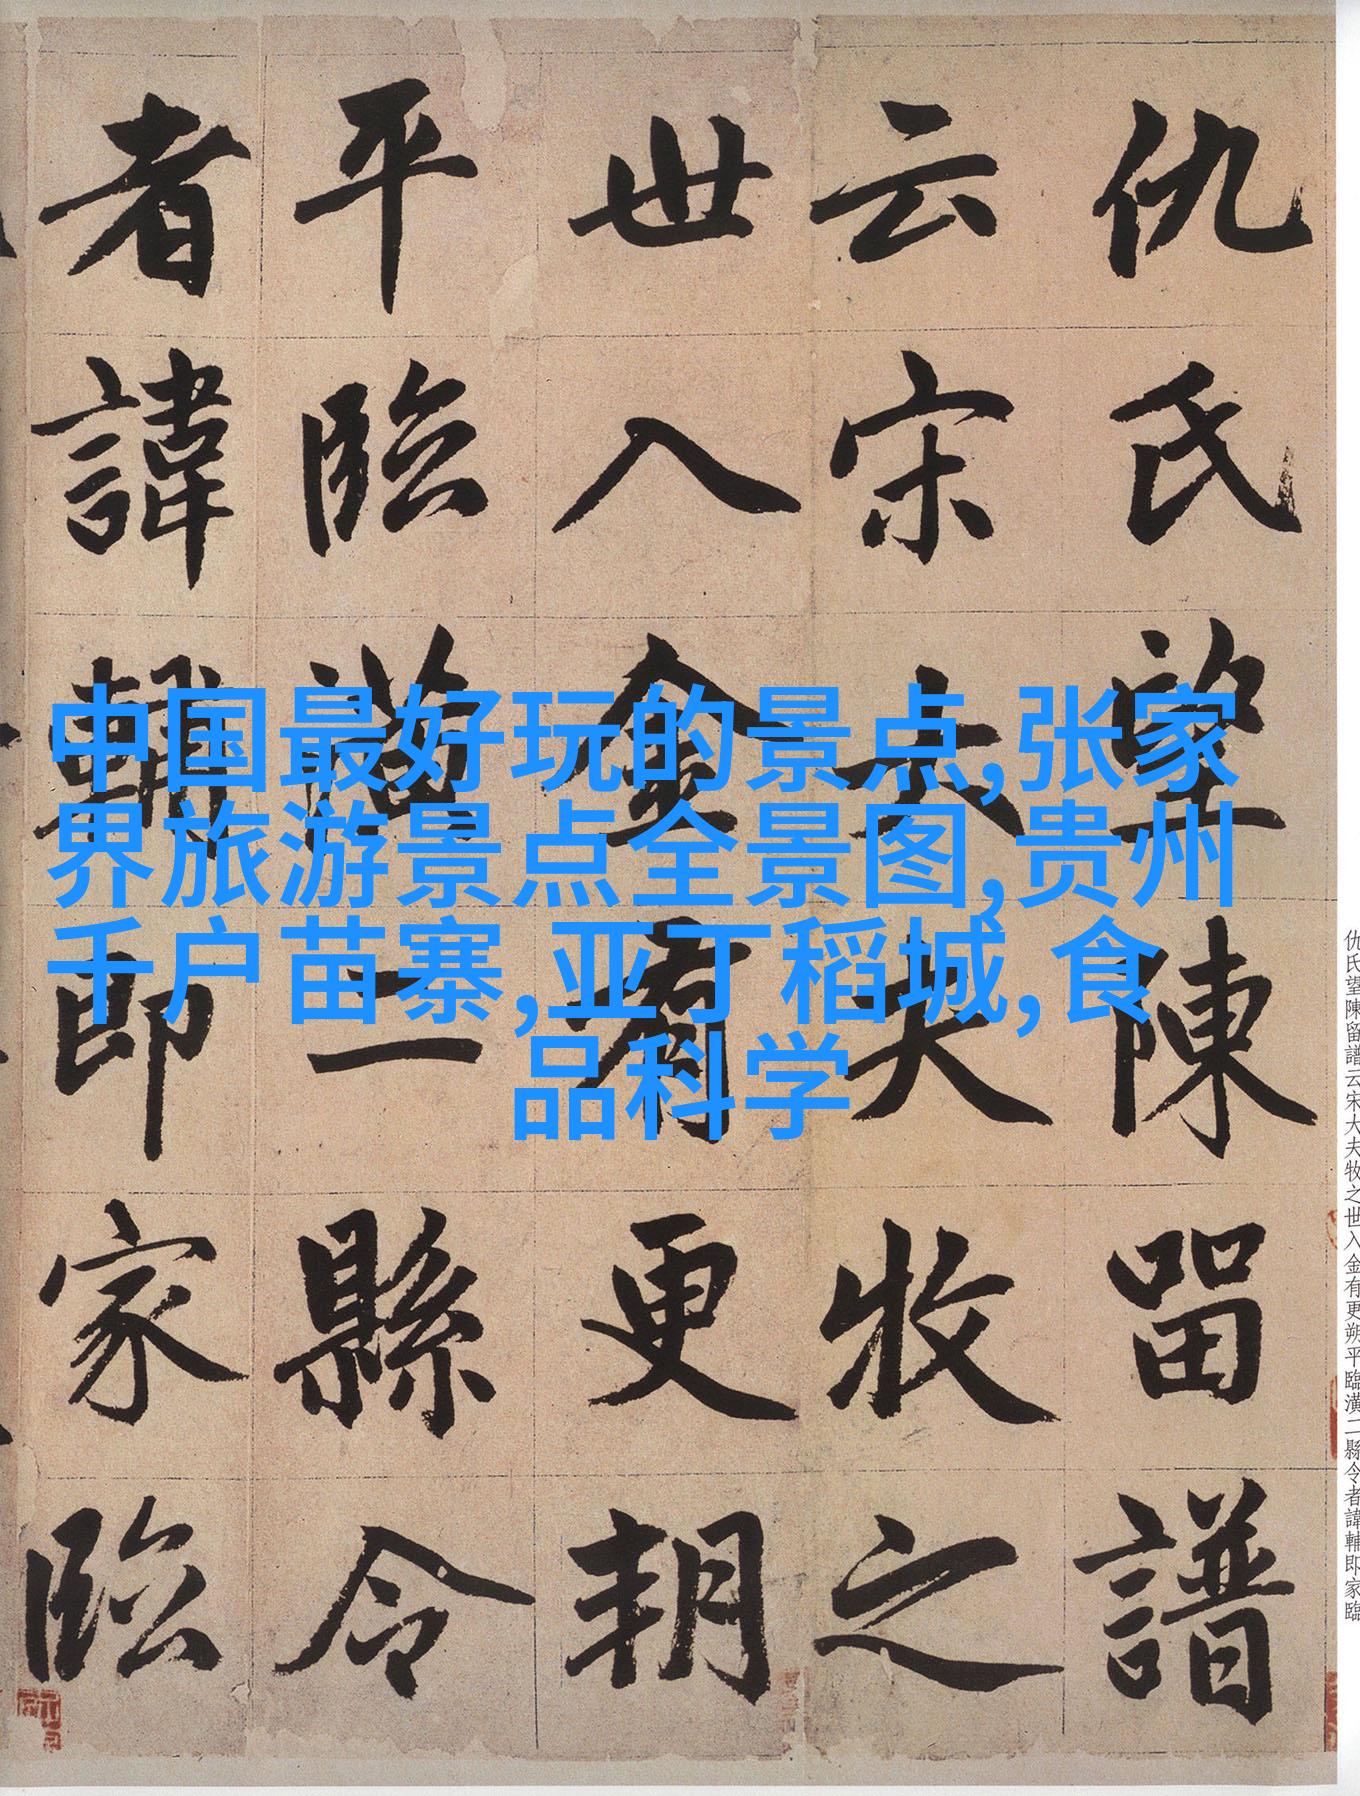 仇氏望陳留譜
云宋大夫牧之
世入金有更朔
平臨潢二縣令
者諱輔即家臨
中国最好玩的景点,张家
界旅游景点全景图,贵州
千户苗寨,亚丁稻城,食
品科学
仇氏望陳留譜云宋大夫牧之世入金有更朔平臨潢二縣令者諱輔即家臨